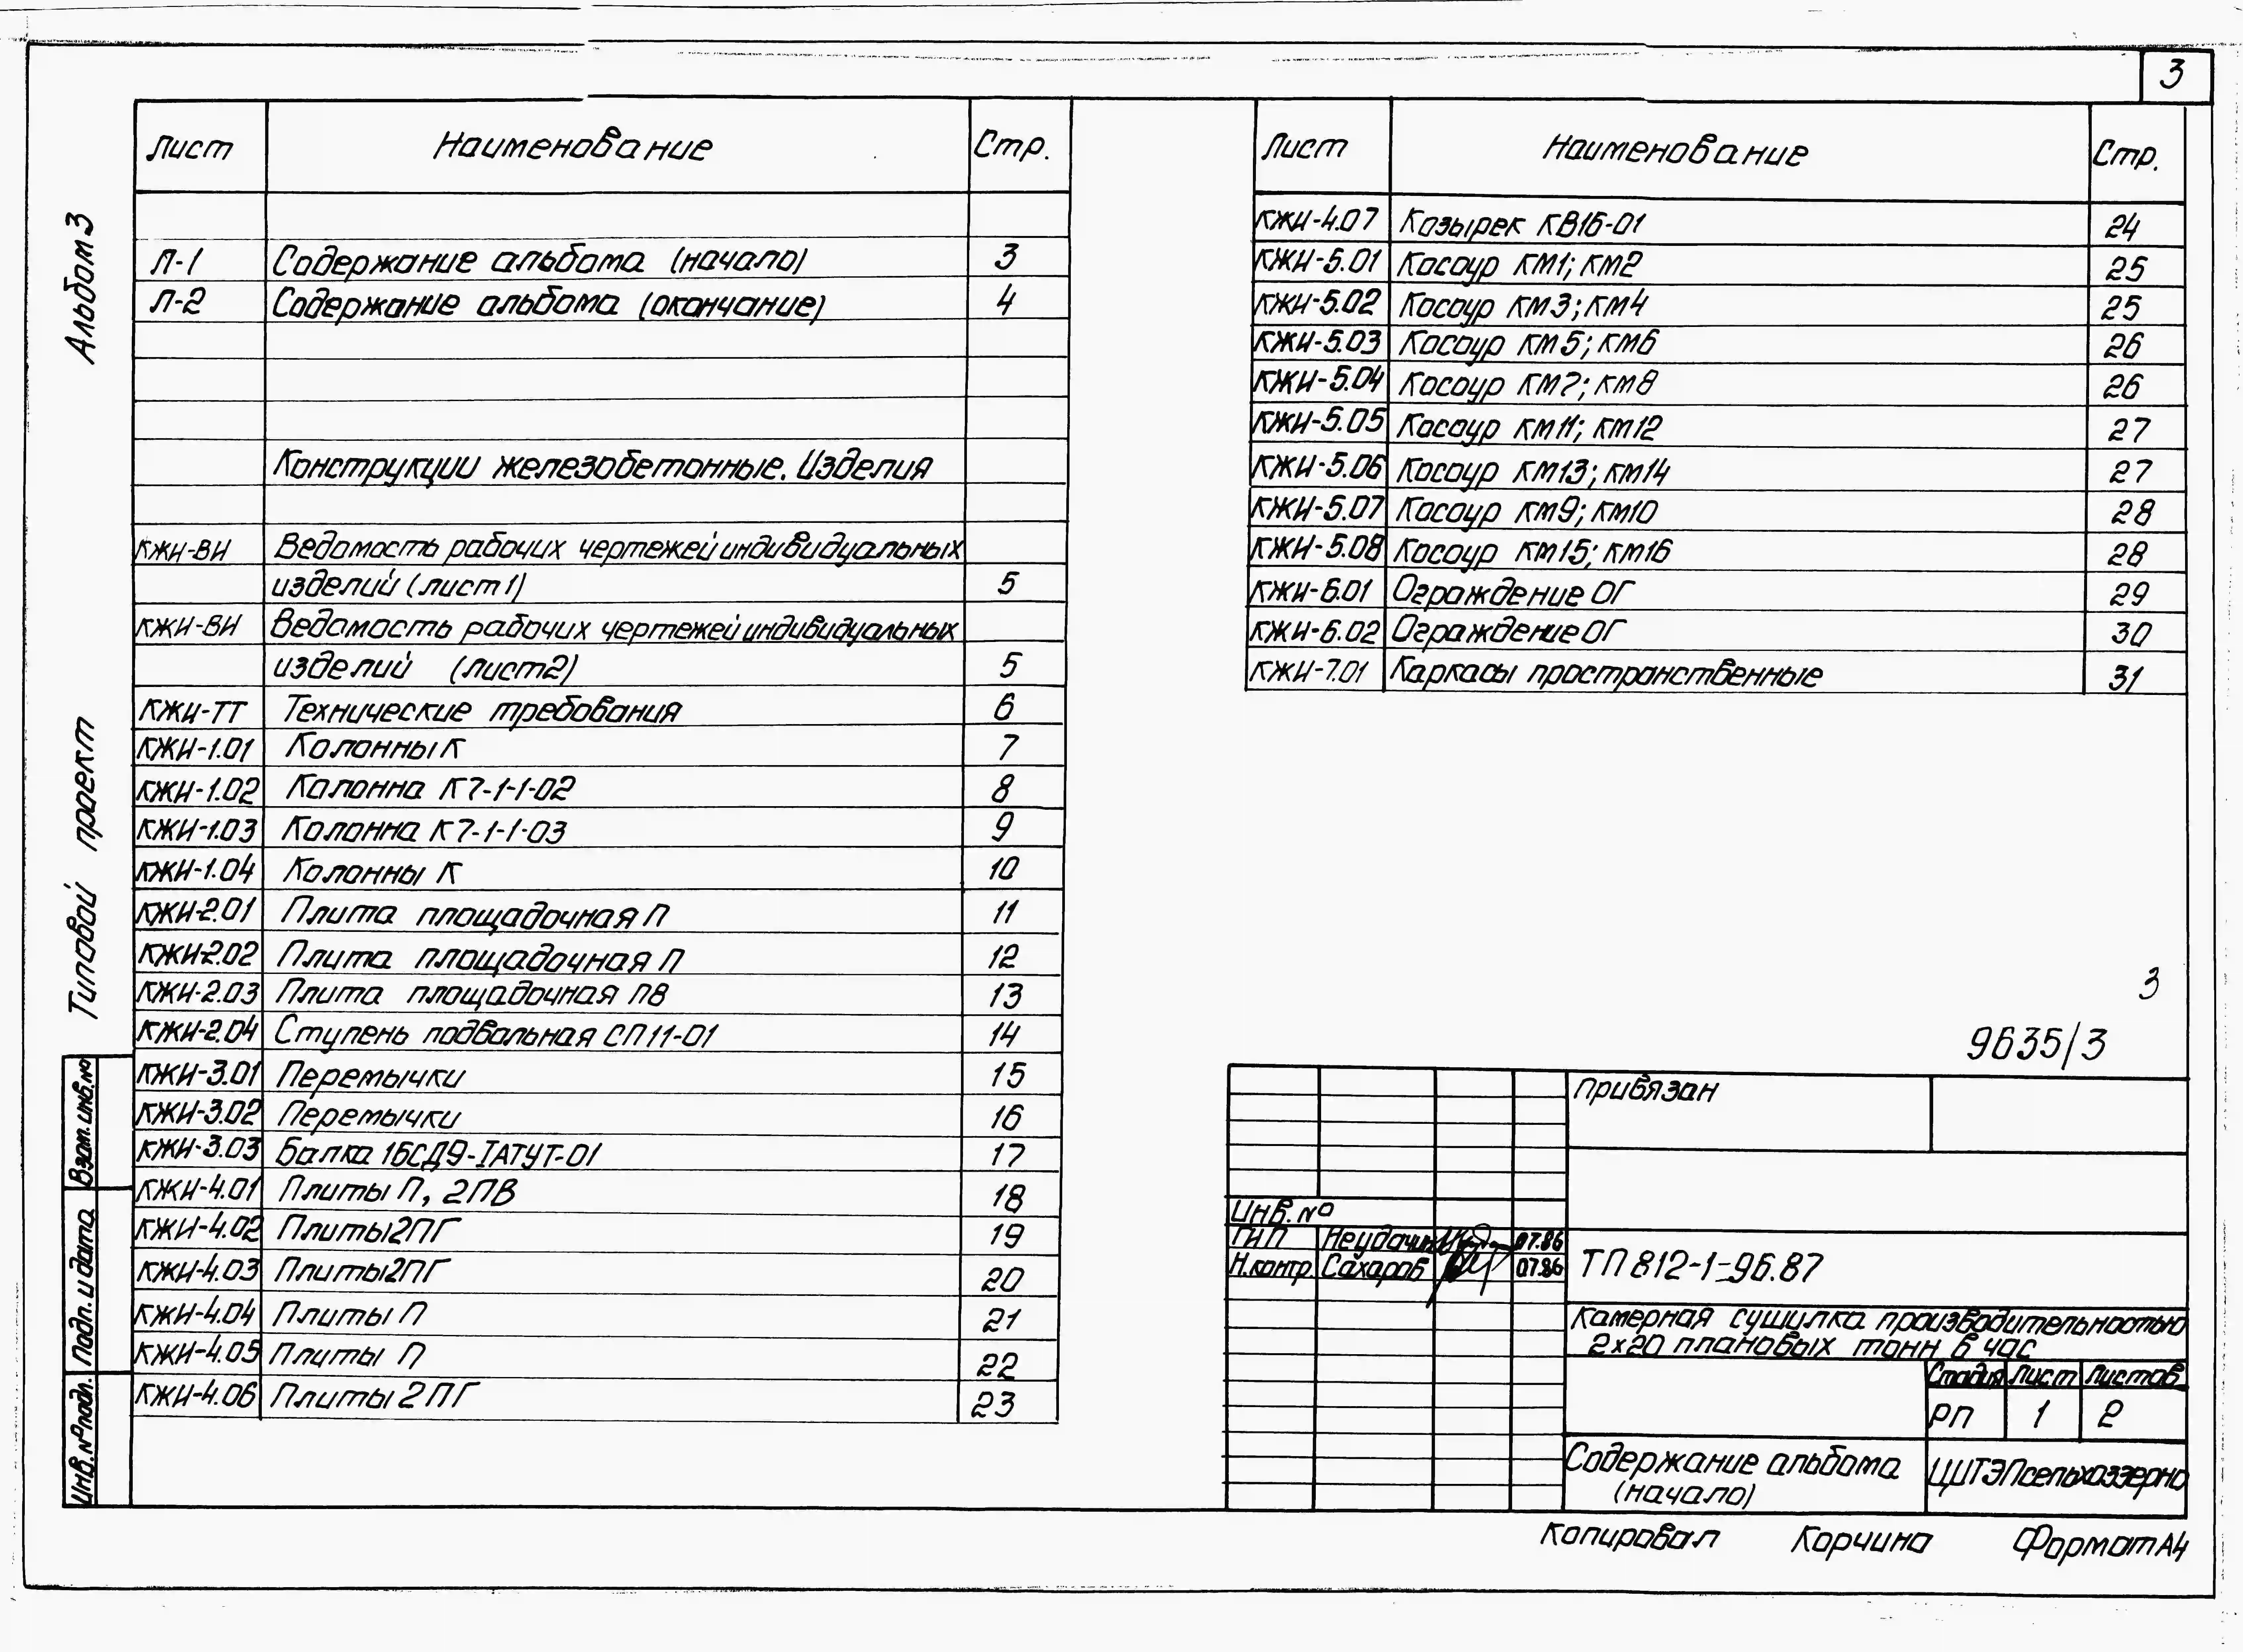 3
Альбом 3
Типовой проект
Лист Наименование Стр.
Л-1 Содержание альбома (начало) 3
Л-2 Содержание альбома (окончание) 4
Конструкции железобетонные. Изделия
КЖИ-ВИ Ведомость рабочих чертежей индивидуальных
изделий (лист 1) 5
КЖИ-ВИ Ведомость рабочих чертежей индивидуальных
изделий (лист 2) 5
КЖИ-ТТ Технические требования 6
КЖИ-1.01 Колонны К 7
КЖИ-1.02 Колонна К7-1-1-02 8
КЖИ-1.03 Колонна К7-1-1-03 9
КЖИ-1.04 Колонны К 10
КЖИ-2.01 Плита площадочная П 11
КЖИ-2.02 Плита площадочная П 12
КЖИ-2.03 Плита площадочная П8 13
КЖИ-2.04 Ступень подвальная СП11-01 14
КЖИ-3.01 Перемычки 15
КЖИ-3.02 Перемычки 16
КЖИ-3.03 Балка 1БСД9-IАТУТ-01 17
КЖИ-4.01 Плиты П, 2ПВ 18
КЖИ-4.02 Плиты 2ПГ 19
КЖИ-4.03 Плиты 2ПГ 20
КЖИ-4.04 Плиты П 21
КЖИ-4.05 Плиты П 22
КЖИ-4.06 Плиты 2ПГ 23
Лист Наименование Стр.
КЖИ-4.07 Козырек КВ16-01 24
КЖИ-5.01 Косоур КМ1; КМ2 25
КЖИ-5.02 Косоур КМ3; КМ4 25
КЖИ-5.03 Косоур КМ5; КМ6 26
КЖИ-5.04 Косоур КМ7; КМ8 26
КЖИ-5.05 Косоур КМ11; КМ12 27
КЖИ-5.06 Косоур КМ13; КМ14 27
КЖИ-5.07 Косоур КМ9; КМ10 28
КЖИ-5.08 Косоур КМ15; КМ16 28
КЖИ-6.01 Ограждение ОГ 29
КЖИ-6.02 Ограждение ОГ 30
КЖИ-7.01 Каркасы пространственные 31
3
9635/3
Привязан
Инв. №
ГИП 07.86
Н.контр. Сахаров 07.86
ТП 812-1-96.87
Камерная сушилка производительностью
2х20 плановых тонн в час
Стадия Лист Листов
РП 1 2
Содержание альбома
(начало)
ЦИТЭПсельхоззерно
Взам. инв. №
Подп. и дата
Инв. № подл.
Копировал Корчина Формат А4